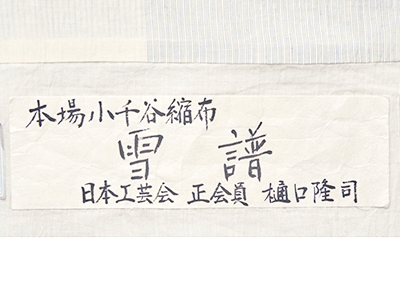 本場小千谷縮布
雪譜
日本工芸会 正会員 樋口隆司